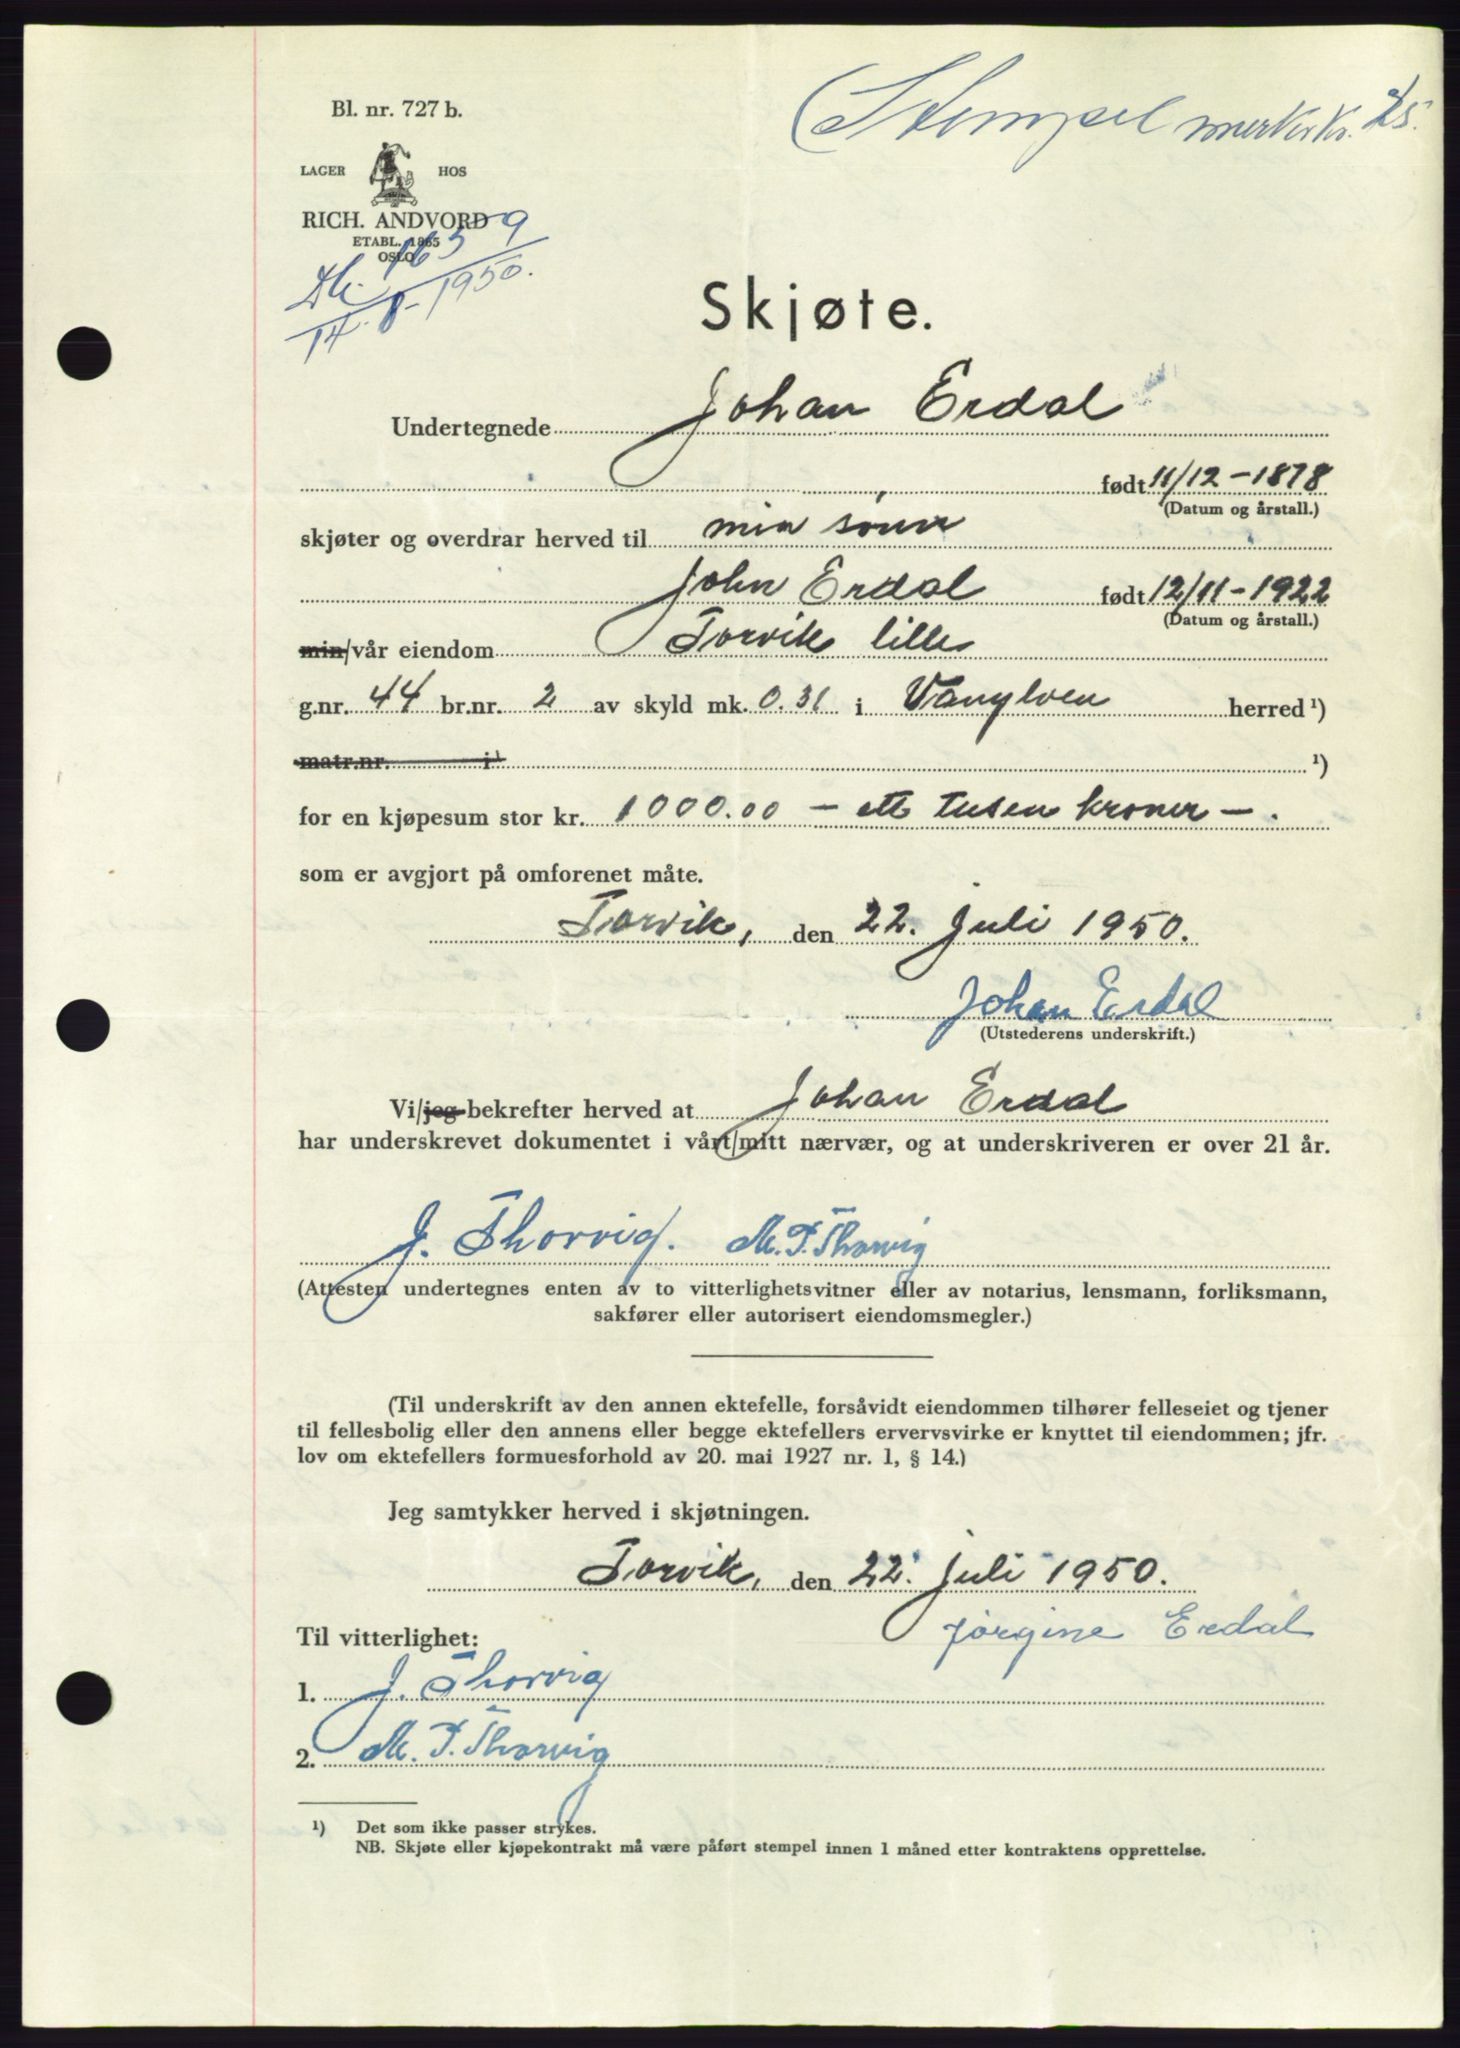 Bl. nr. 727 b.
Stempel merker kr. 25.
LAGER HOS
RICH. ANDVORD
ETABL. 1865
OSLO
Db. 1659
14.-8-1950.
Skjøte.
Undertegnede Johan Erdal
født 11/12-1878
(Datum og årstall.)
skjøter og overdrar herved til min sønn
John Erdal født 12/11-1922
(Datum og årstall.)
min/vår eiendom Torvik lille
g.nr. 44 br.nr. 2 av skyld mk. 0.31 i Vanylven herred ¹)
matr.nr. i ¹)
for en kjøpesum stor kr. 1000.00 – ett tusen kroner – .
som er avgjort på omforenet måte.
Torvik, den 22. juli 1950.
Johan Erdal
(Utstederens underskrift.)
Vi/jeg bekrefter herved at Johan Erdal
har underskrevet dokumentet i vårt/mitt nærvær, og at underskriveren er over 21 år.
J. Thorvig. M. P. Thorvig
(Attesten undertegnes enten av to vitterlighetsvitner eller av notarius, lensmann, forliksmann,
sakfører eller autorisert eiendomsmegler.)
(Til underskrift av den annen ektefelle, forsåvidt eiendommen tilhører felleseiet og tjener
til fellesbolig eller den annens eller begge ektefellers ervervsvirke er knyttet til eiendommen; jfr.
lov om ektefellers formuesforhold av 20. mai 1927 nr. 1, § 14.)
Jeg samtykker herved i skjøtningen.
Torvik, den 22. juli 1950.
Jørgine Erdal
Til vitterlighet:
1. J. Thorvig
2. M. P. Thorvig
¹) Det som ikke passer strykes.
NB. Skjøte eller kjøpekontrakt må være påført stempel innen 1 måned etter kontraktens opprettelse.